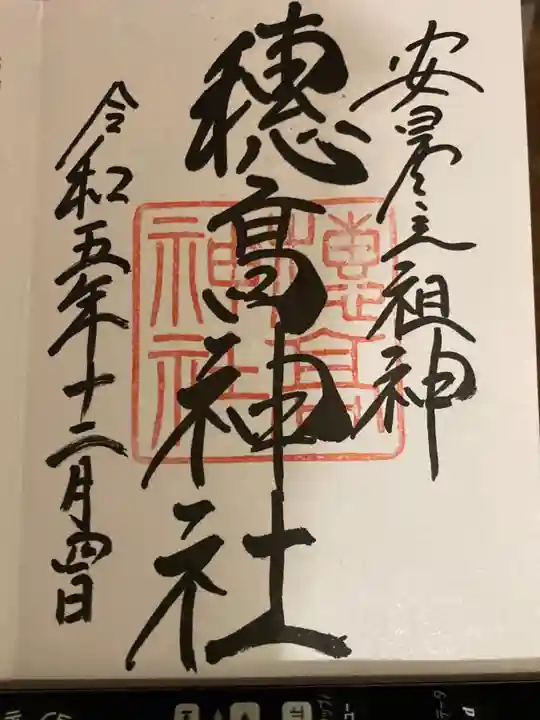 安曇之祖神
穂髙神社
令和五年十二月四日
穂高
神社